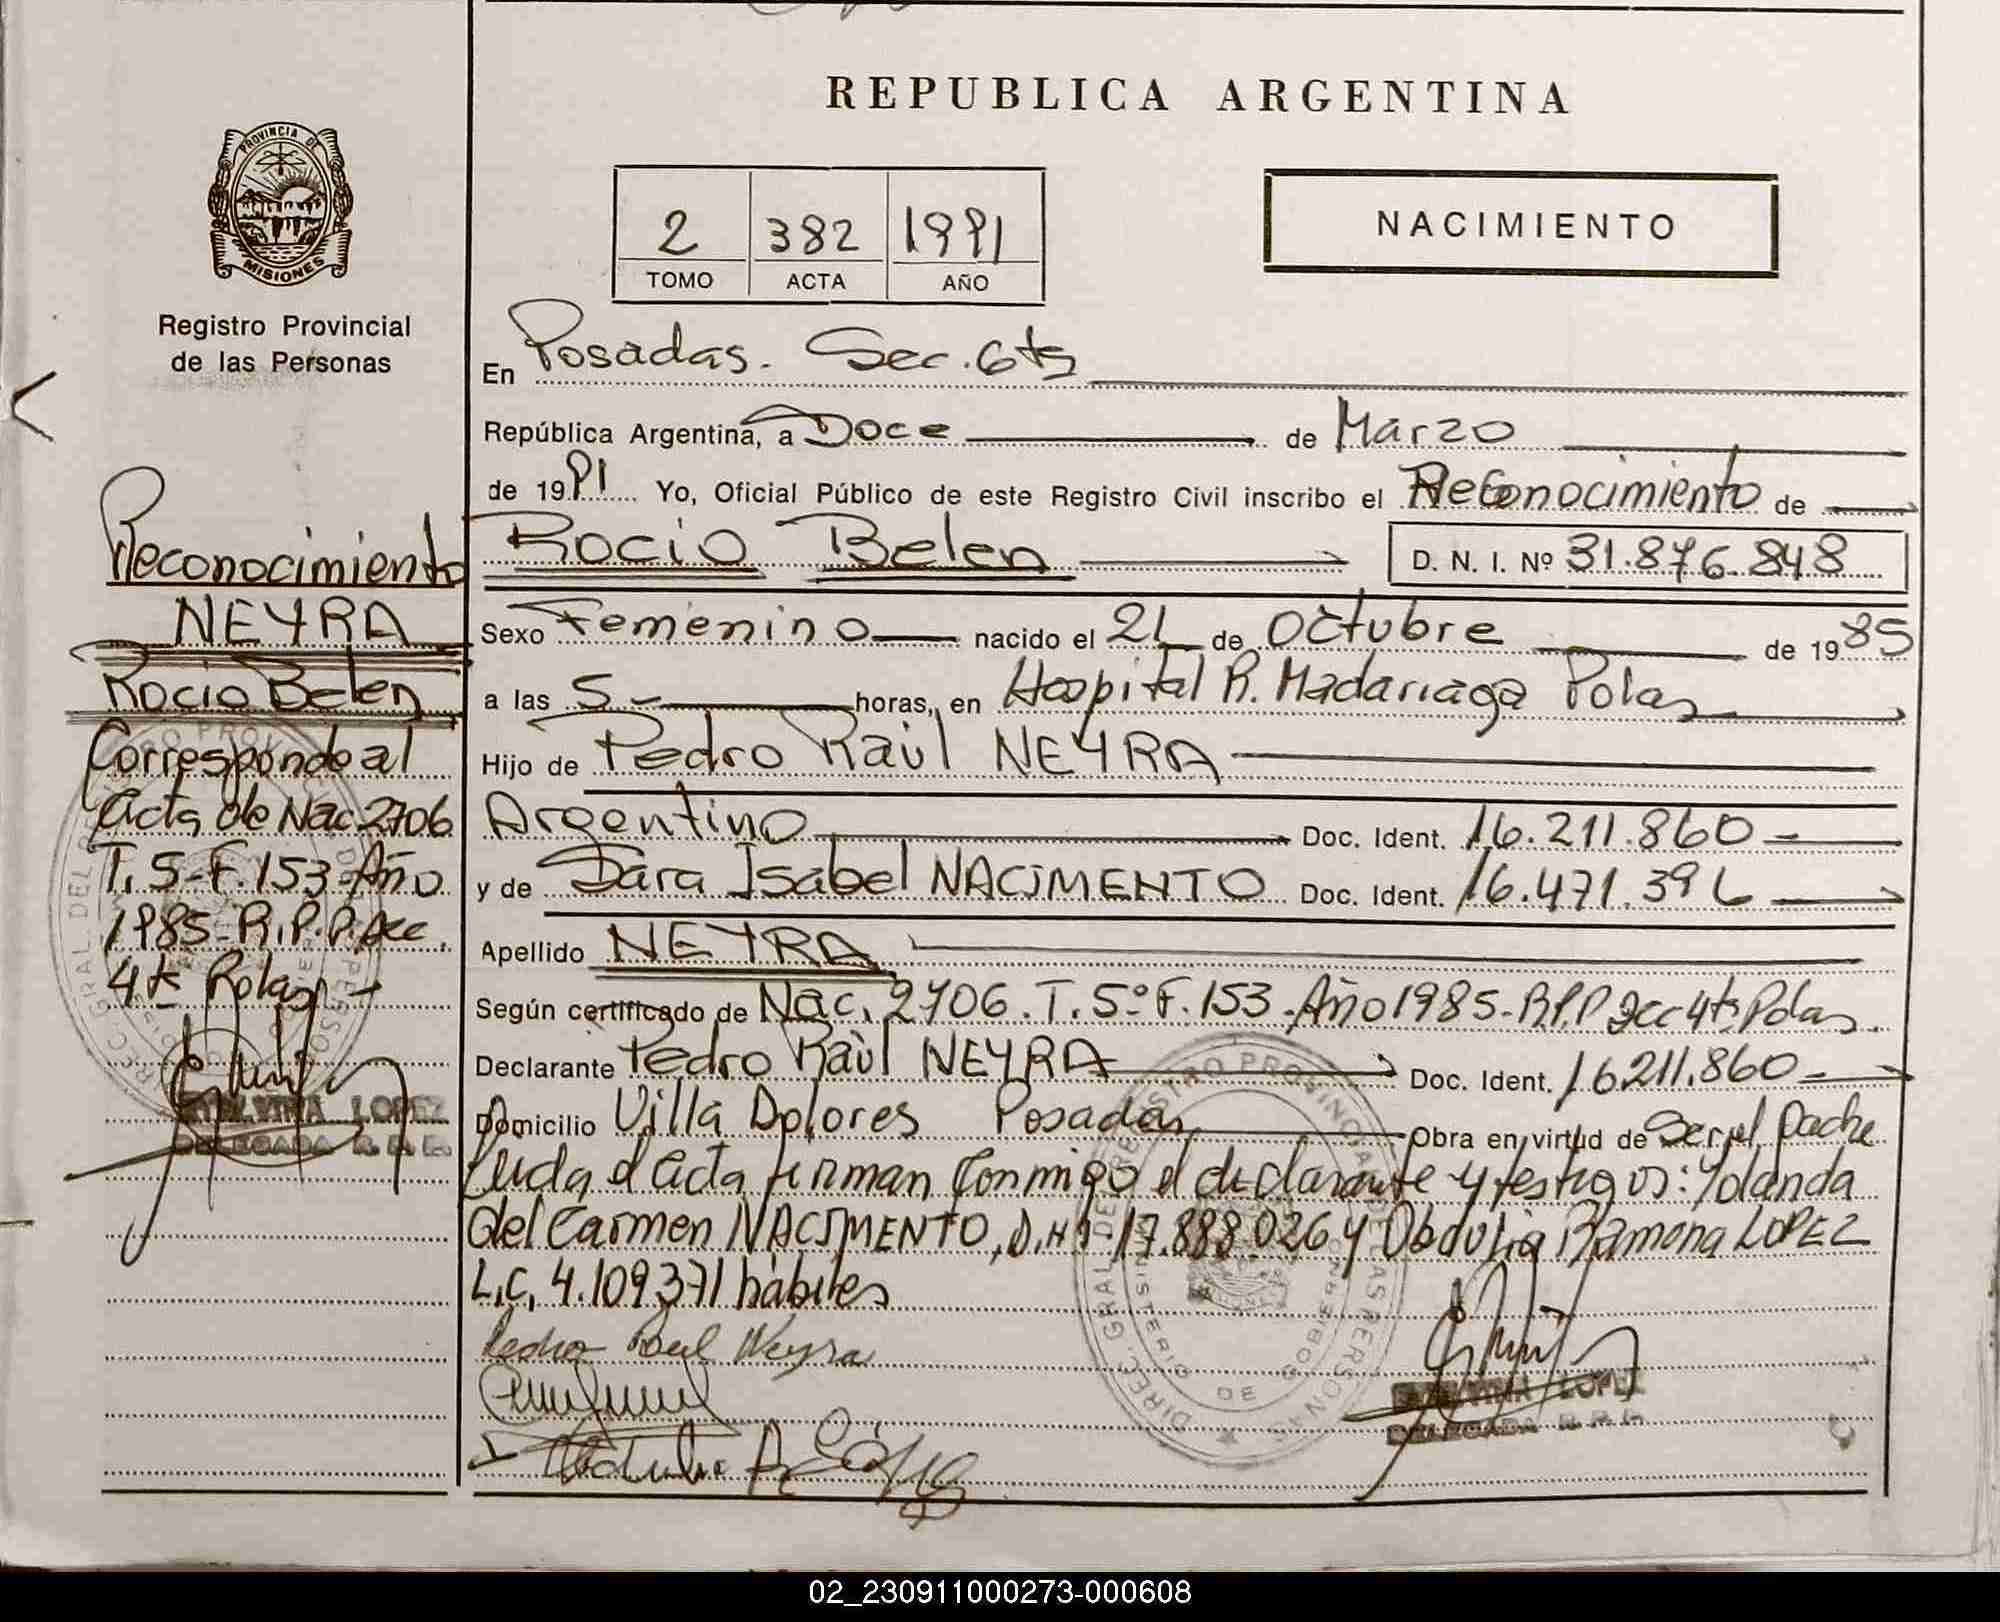 REPUBLICA ARGENTINA
PROVINCIA DE MISIONES
Registro Provincial
de las Personas
2 382 1991
TOMO ACTA AÑO
NACIMIENTO
En Posadas. Sec. 6ta
República Argentina, a Doce de Marzo
de 1991 Yo, Oficial Público de este Registro Civil inscribo el Reconocimiento de
Rocio Belen D. N. I. Nº 31.876.848
Sexo Femenino nacido el 21 de Octubre de 1985
a las 5 - horas, en Hospital R. Madariaga Pdas
Hijo de Pedro Raúl NEYRA
Argentino Doc. Ident. 16.211.860 -
y de Sara Isabel NACIMENTO Doc. Ident. 16.471.396
Apellido NEYRA
Según certificado de Nac. 2706. T. 5º F. 153 - Año 1985 - R.P.P Secc 4ta Pdas.
Declarante Pedro Raúl NEYRA Doc. Ident. 16.211.860 -
Domicilio Villa Dolores Posadas Obra en virtud de Ser el Padre
Leida el acta firman conmigo el declarante y testigos: Yolanda
del Carmen NACIMENTO, D.N.I. 17.888.026 y Obdulia Ramona LOPEZ
L.C. 4.109.371 hábiles
Pedro Raul Neyra
LOPEZ
DELEGADA R. P. P.
Reconocimiento
NEYRA
Rocio Belen
Corresponde al
Acta de Nac 2706
T. 5 - F. 153 - Año
1985 - R.P.P. Secc.
4ta Pdas
LOPEZ
DELEGADA R. P. P.
02_230911000273-000608